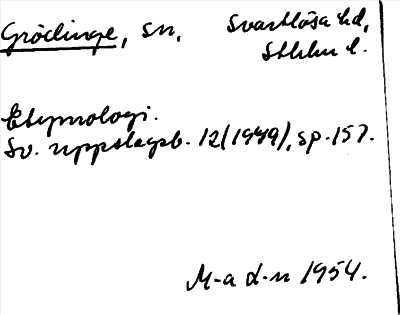 Grödinge, sn, Svartlösa hd,
Sthlm l.
Etymologi.
Sv. uppslagsb. 12(1949), sp. 157.
M-a d-n 1954.